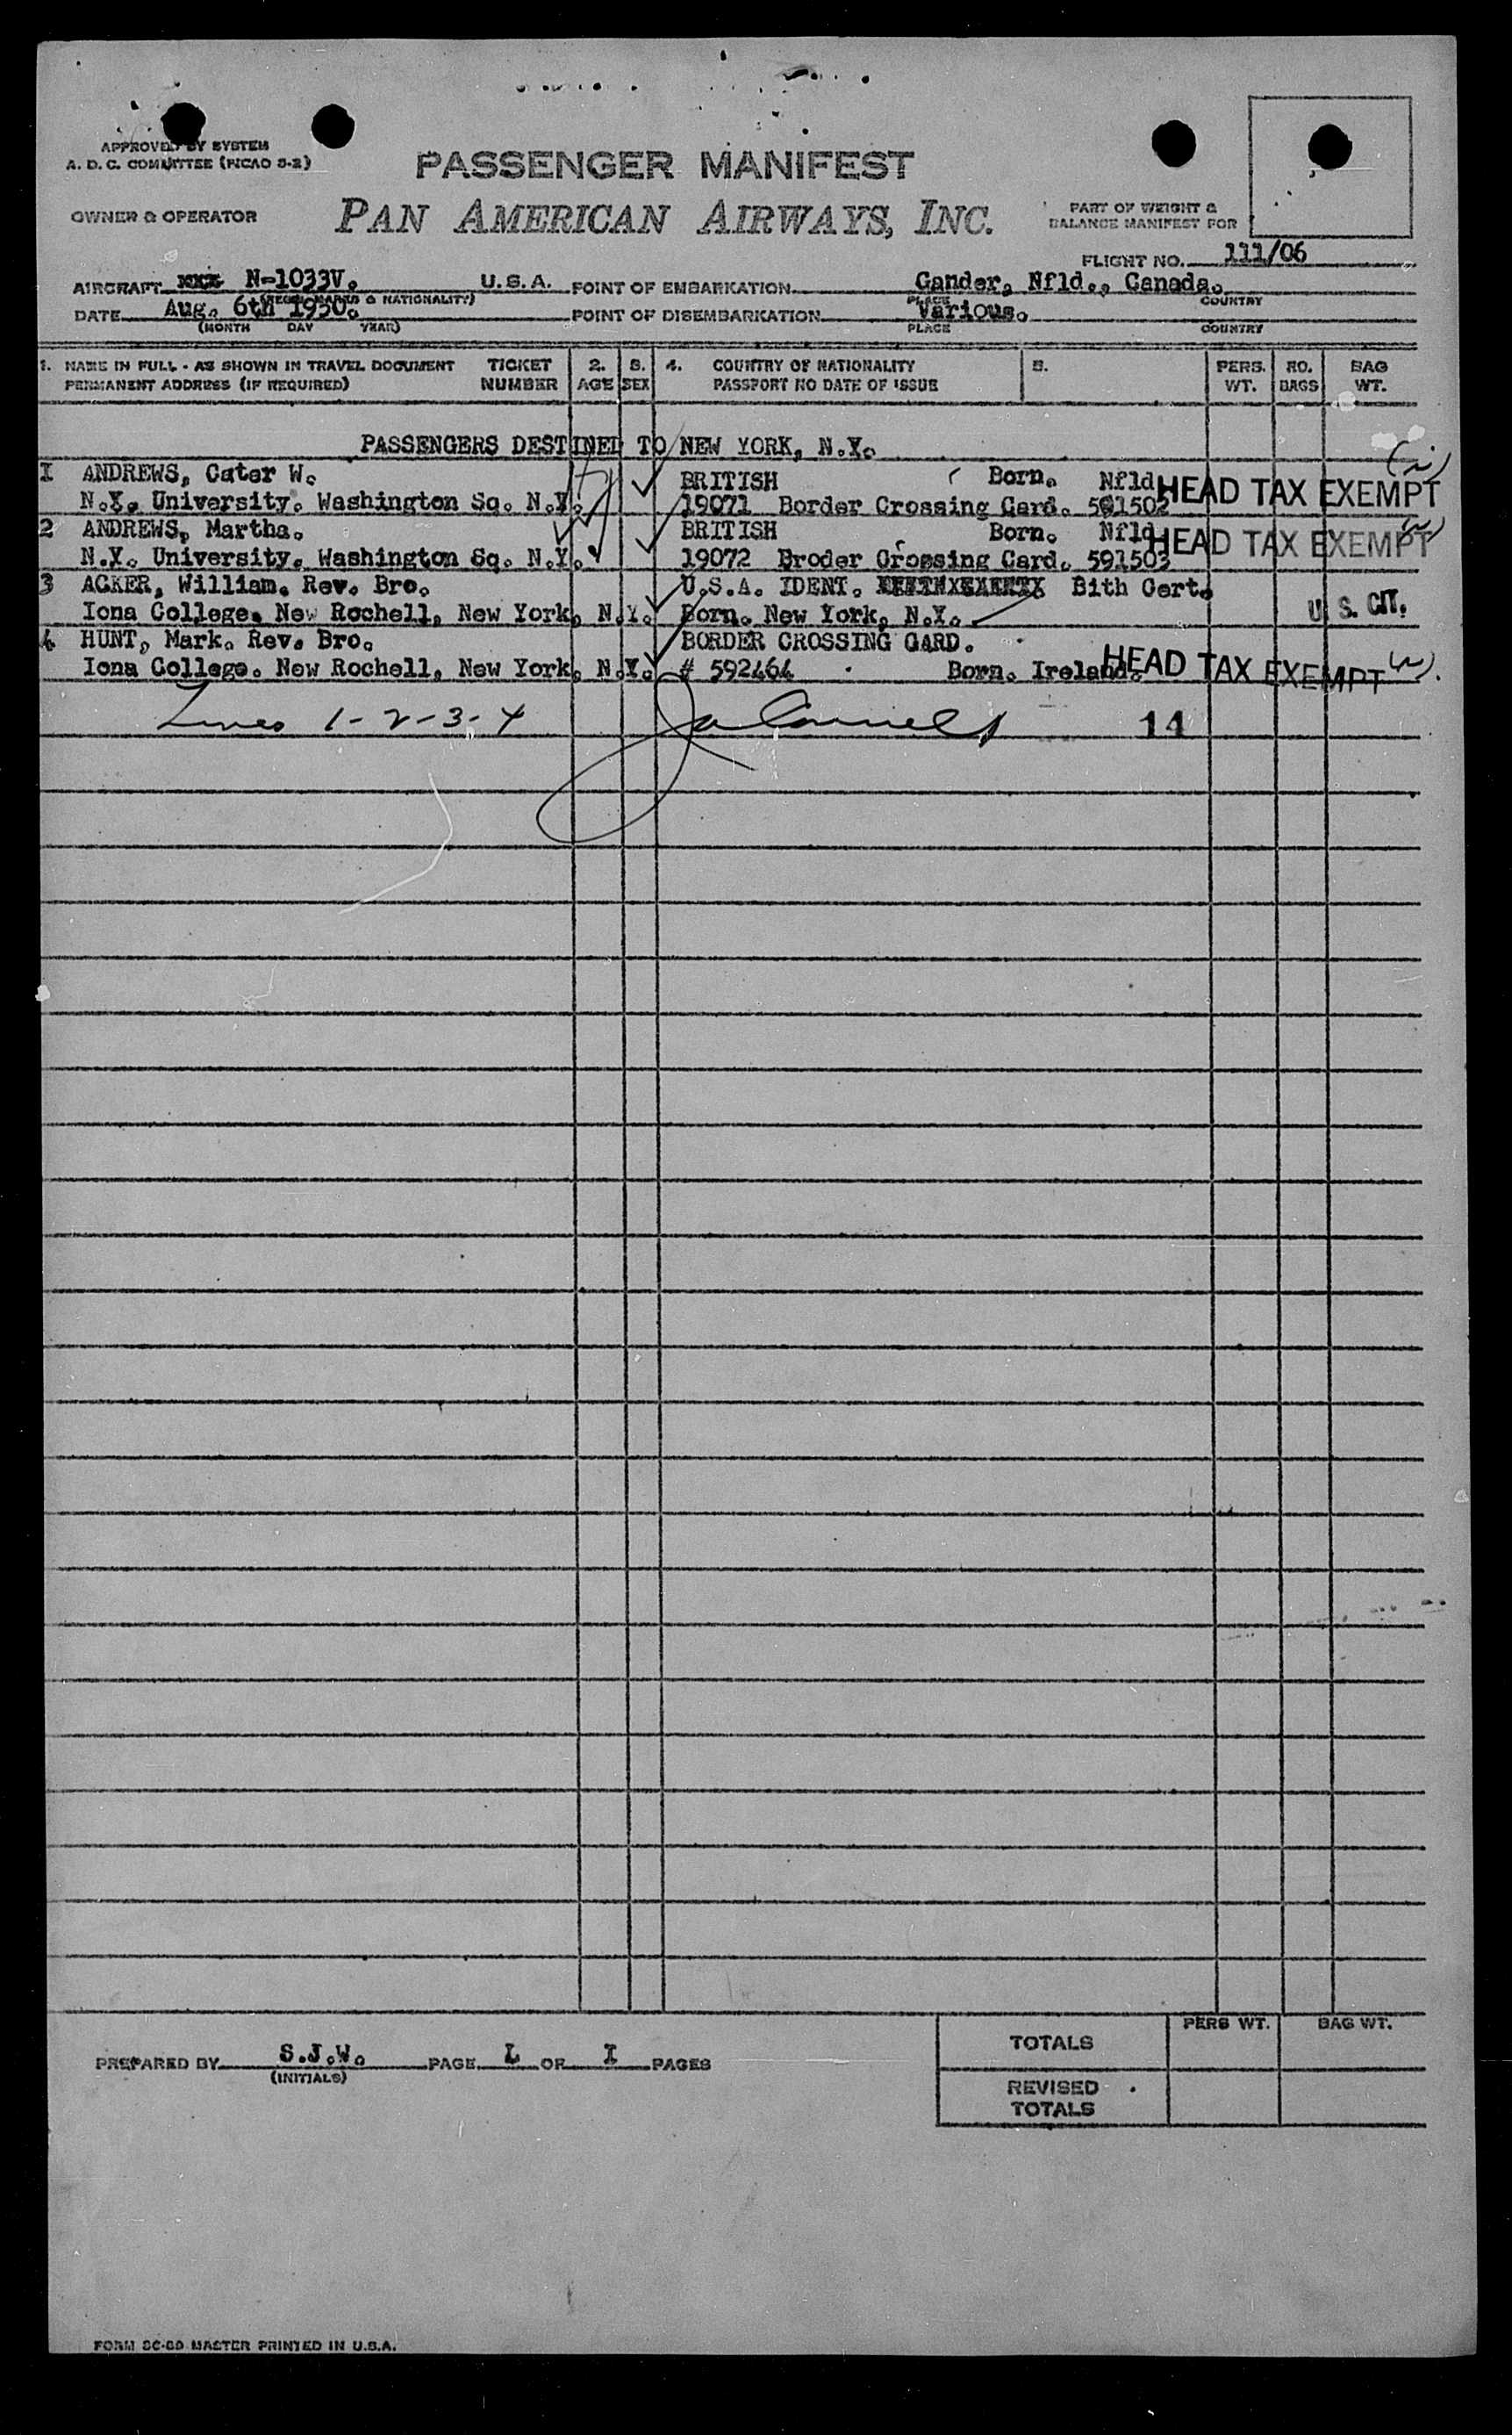 APPROVED BY SYSTEM
A. D. C. COMMITTEE (PICAO S-2)
PASSENGER MANIFEST
OWNER & OPERATOR
PAN AMERICAN AIRWAYS, INC.
PART OF WEIGHT &
BALANCE MANIFEST FOR
FLIGHT NO. 111/06
AIRCRAFT N-1033V. U.S.A. POINT OF EMBARKATION Gander, Nfld., Canada.
(REGIS. MARKS & NATIONALITY) PLACE COUNTRY
DATE Aug. 6th 1950. POINT OF DISEMBARKATION Various.
(MONTH DAY YEAR) PLACE COUNTRY
1. NAME IN FULL - AS SHOWN IN TRAVEL DOCUMENT TICKET 2. 3. 4. COUNTRY OF NATIONALITY 5. PERS. NO. BAG
PERMANENT ADDRESS (IF REQUIRED) NUMBER AGE SEX PASSPORT NO DATE OF ISSUE WT. BAGS WT.
PASSENGERS DESTINED TO NEW YORK, N.Y.
1 ANDREWS, Cater W. BRITISH Born. Nfld
N.Y. University. Washington Sq. N.Y. 19071 Border Crossing Card. 591502 HEAD TAX EXEMPT
2 ANDREWS, Martha. BRITISH Born. Nfld
N.Y. University. Washington Sq. N.Y. 19072 Broder Crossing Card. 591503 HEAD TAX EXEMPT
3 ACKER, William. Rev. Bro. U.S.A. IDENT. Bith Cert.
Iona College. New Rochell, New York, N.Y. Born. New York, N.Y. U.S. CIT.
4 HUNT, Mark. Rev. Bro. BORDER CROSSING CARD.
Iona College. New Rochell, New York, N.Y. # 592464 Born. Ireland. HEAD TAX EXEMPT
Lines 1-2-3-4 14
PREPARED BY S.J.W. PAGE L OF I PAGES
(INITIALS)
PERS WT. BAG WT.
TOTALS
REVISED
TOTALS
FORM SC-80 MASTER PRINTED IN U.S.A.